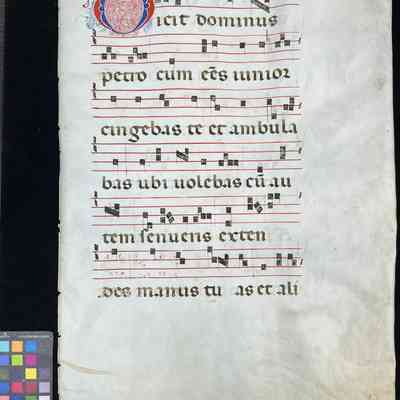 Dicit dominus
petro cum ēēs iunior
cingebas te et ambula
bas ubi uolebas cū au
tem senueris exten
des manus tu as et ali